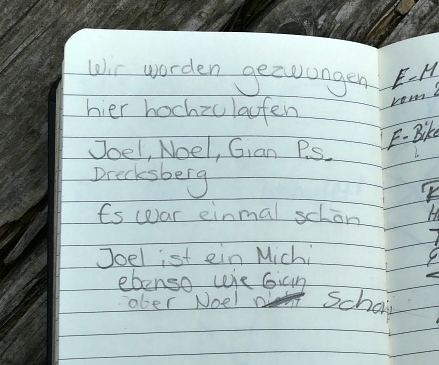 Wir worden gezwungen
hier hochzulaufen
Joel, Noel, Gian P.s.
Drecksberg
Es war einmal schön
Joel ist ein Michi
ebenso wie Gian
aber Noel nicht schon
E-M
vom
E-Bike